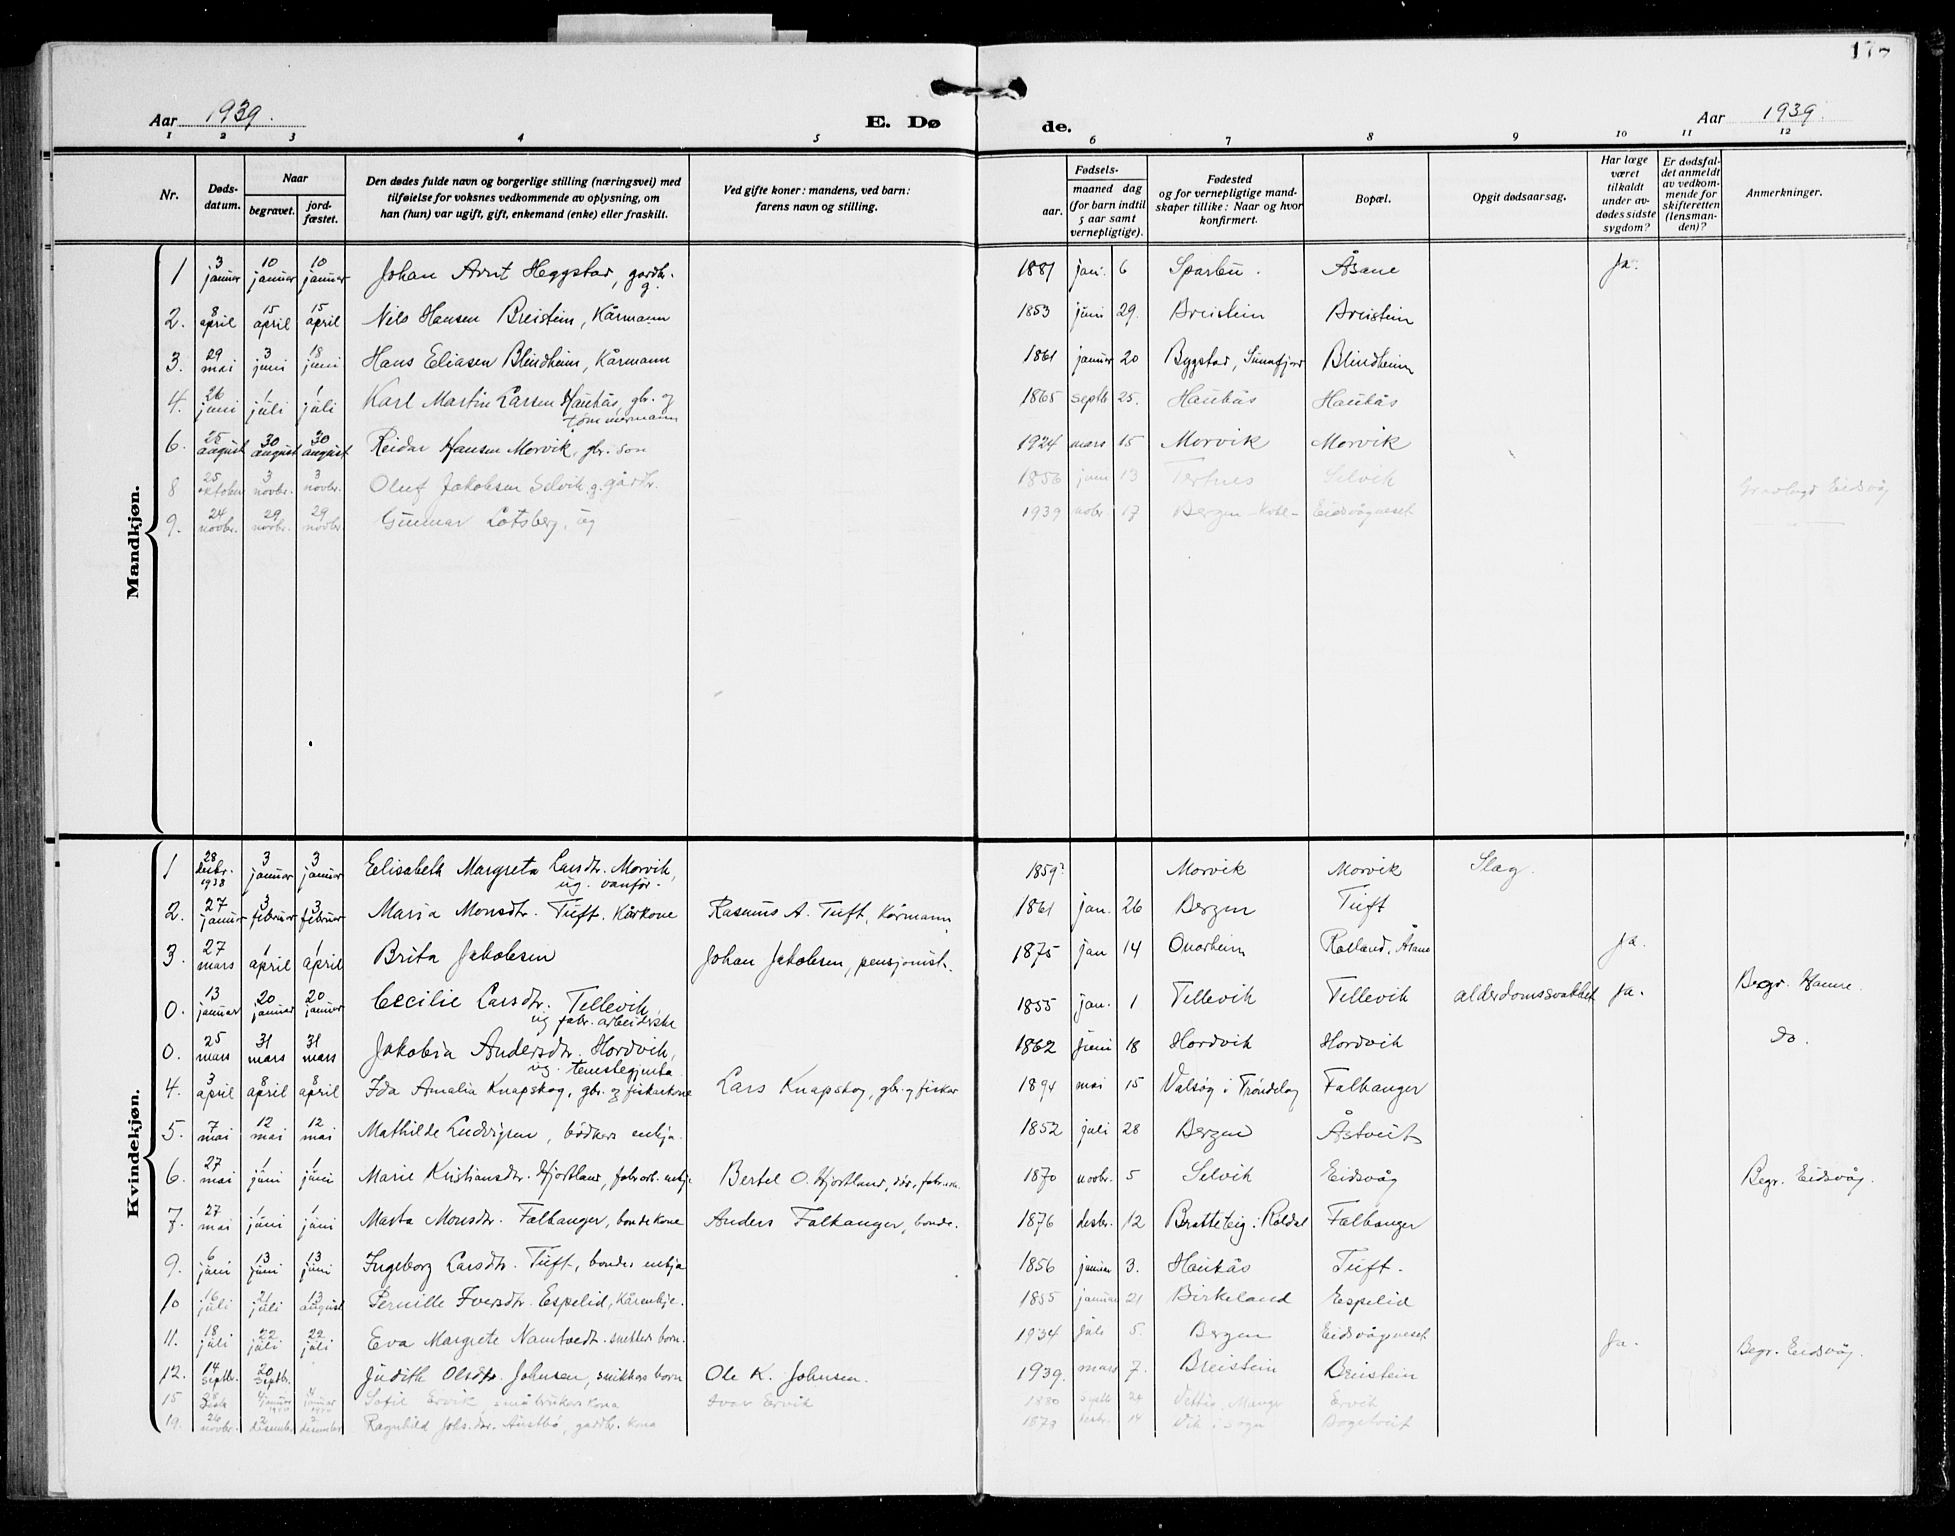 Aar 1939.
E. Dø
de.
Aar 1939.
1 2 3 4 5 6 7 8 9 10 11 12
Nr.
Døds-
datum.
Naar
begravet.
jord-
fæstet.
Den dødes fulde navn og borgerlige stilling (næringsvei) med
tilføielse for voksnes vedkommende av oplysning, om
han (hun) var ugift, gift, enkemand (enke) eller fraskilt.
Ved gifte koner: mandens, ved barn:
farens navn og stilling.
Fødsels-
aar.
maaned dag
(for barn indtil
5 aar samt
vernepligtige).
Fødested
og for vernepligtige mand-
skaper tillike: Naar og hvor
konfirmert.
Bopæl.
Opgit dødsaarsag.
Har læge
været
tilkaldt
under av-
dødes sidste
sygdom?
Er dødsfal-
det anmeldt
av vedkom-
mende for
skifteretten
(lensman-
den)?
Anmerkninger.
Mandkjøn.
1 3 januar 10 januar 10 januar Johan Arnt Heggstad, gardbr. g. 1881 jan. 6 Sparbu. Åsane Ja.
2. 8 april 15 april 15 april Nils Hansen Breistein, Kårmann 1853 juni 29. Breistein Breistein
3. 29 mai 3 juni 18 juni Hans Eliasen Blindheim, Kårmann 1861 januar 20 Bygstad, Sunnfjord Blindheim
4. 26 juni 1 juli 1 juli Karl Martin Larsen Haukås, gbr. og tømmermann 1865 septb 25. Haukås Haukås
6. 25 august 30 august 30 august Reidar Hansen Morvik, gbr. son 1924 mars 15 Morvik Morvik
8 25 oktober 3 novbr. 3 novbr. Oluf Jakobsen Selvik, g. gårdbr. 1856 juni 13 Tertnes Selvik Gravlagt Eidsvåg
9. 24 novbr. 29 novbr. 29 novbr. Gunnar Lotsberg, ug 1939 nobr. 17 Bergen Eidsvågneset
Kvindekjøn.
1 28 desbr. 1938 3 januar 3 januar Elisabeth Margreta Larsdtr. Morvik, ug. vanfør. 1859? Morvik Morvik Slag.
2. 27 januar 3 februar 3 februar Maria Monsdtr. Tuft. Kårkone Rasmus A. Tuft, Kårmann 1861 jan. 26 Bergen Tuft
3. 27 mars 1 april 1 april Brita Jakobsen Johan Jakobsen, pensjonist. 1875 jan 14 Onarheim Rolland, Åsane Ja.
0. 13 januar 20 januar 20 januar Cecilie Larsdtr. Tellevik, ug fabr. arbeiderske 1855 jan. 1 Tellevik Tellevik alderdomssvakhet Ja. Begr. Hamre.
0. 25 mars 31 mars 31 mars Jakobia Andersdtr. Hordvik, ug. tenestegjenta 1862 juni 18 Hordvik Hordvik do.
4. 3 april 8 april 8 april Ida Amalia Knapskog, gbr. og fiskarkone Lars Knapskog, gbr. og fiskar 1894 mai 15 Valsøg i Trøndelag Falkanger
5. 7 mai 12 mai 12 mai Mathilde Ludvigsen, bødkers enkja. 1852 juli 28 Bergen Åstveit
6. 27 mai 1 juni 1 juni Marie Kristiansdtr. Hjortland, fabr.arb. enkje Bertel O. Hjortland, 1870 novbr. 5 Selvik Eidsvåg Begr. Eidsvåg.
7. 27 mai 1 juni 1 juni Marta Monsdtr. Falkanger, bondekone Anders Falkanger, bonde. 1876 desbr. 12 Bratteteig i Røldal Falkanger
9. 6 juni 13 juni 13 juni Ingeborg Larsdtr. Tuft, bondes enkja 1856 januar 3. Haukås Tuft.
10 16 juli 21 juli 13 august Pernille Iversdtr. Espelid, Kårenkje. 1855 januar 21 Birkeland Espelid
11. 18 juli 22 juli 22 juli Eva Margrete Namtvedt. snekkers born. 1934 juli 5. Bergen Eidsvågneset Ja. Begr. Eidsvåg.
12. 14 septbr. 20 septbr. Judith Olsdtr. Johnsen, snikkers born Ole K. Johnsen. 1939. mars 7. Breistein Breistein
15 28 4 januar 1940 4 januar 1940 Sofie Ervik, småbrukers kona Ivar Ervik 1880 septb 24 Manger Ervik
19. 26 novbr. 2 desember 2 desember Ragnhild Johs.dtr. Austbø, gardbr. kona desbr. 14 Vik i Sogn